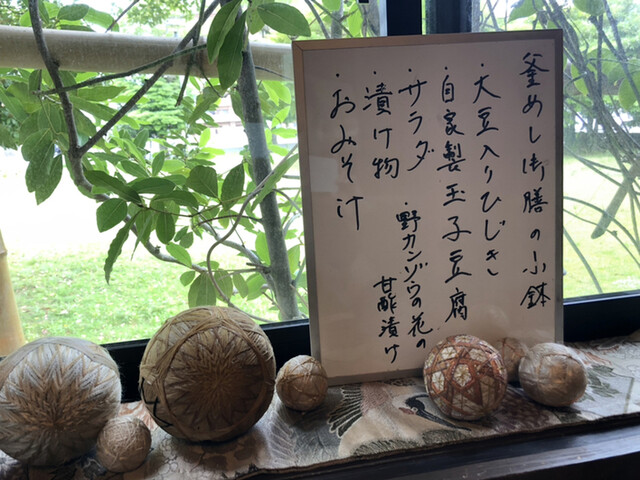 釜めし御膳の小鉢
・大豆入りひじき
・自家製玉子豆腐
・サラダ
野カンゾウの花の
甘酢漬け
・漬け物
・おみそ汁